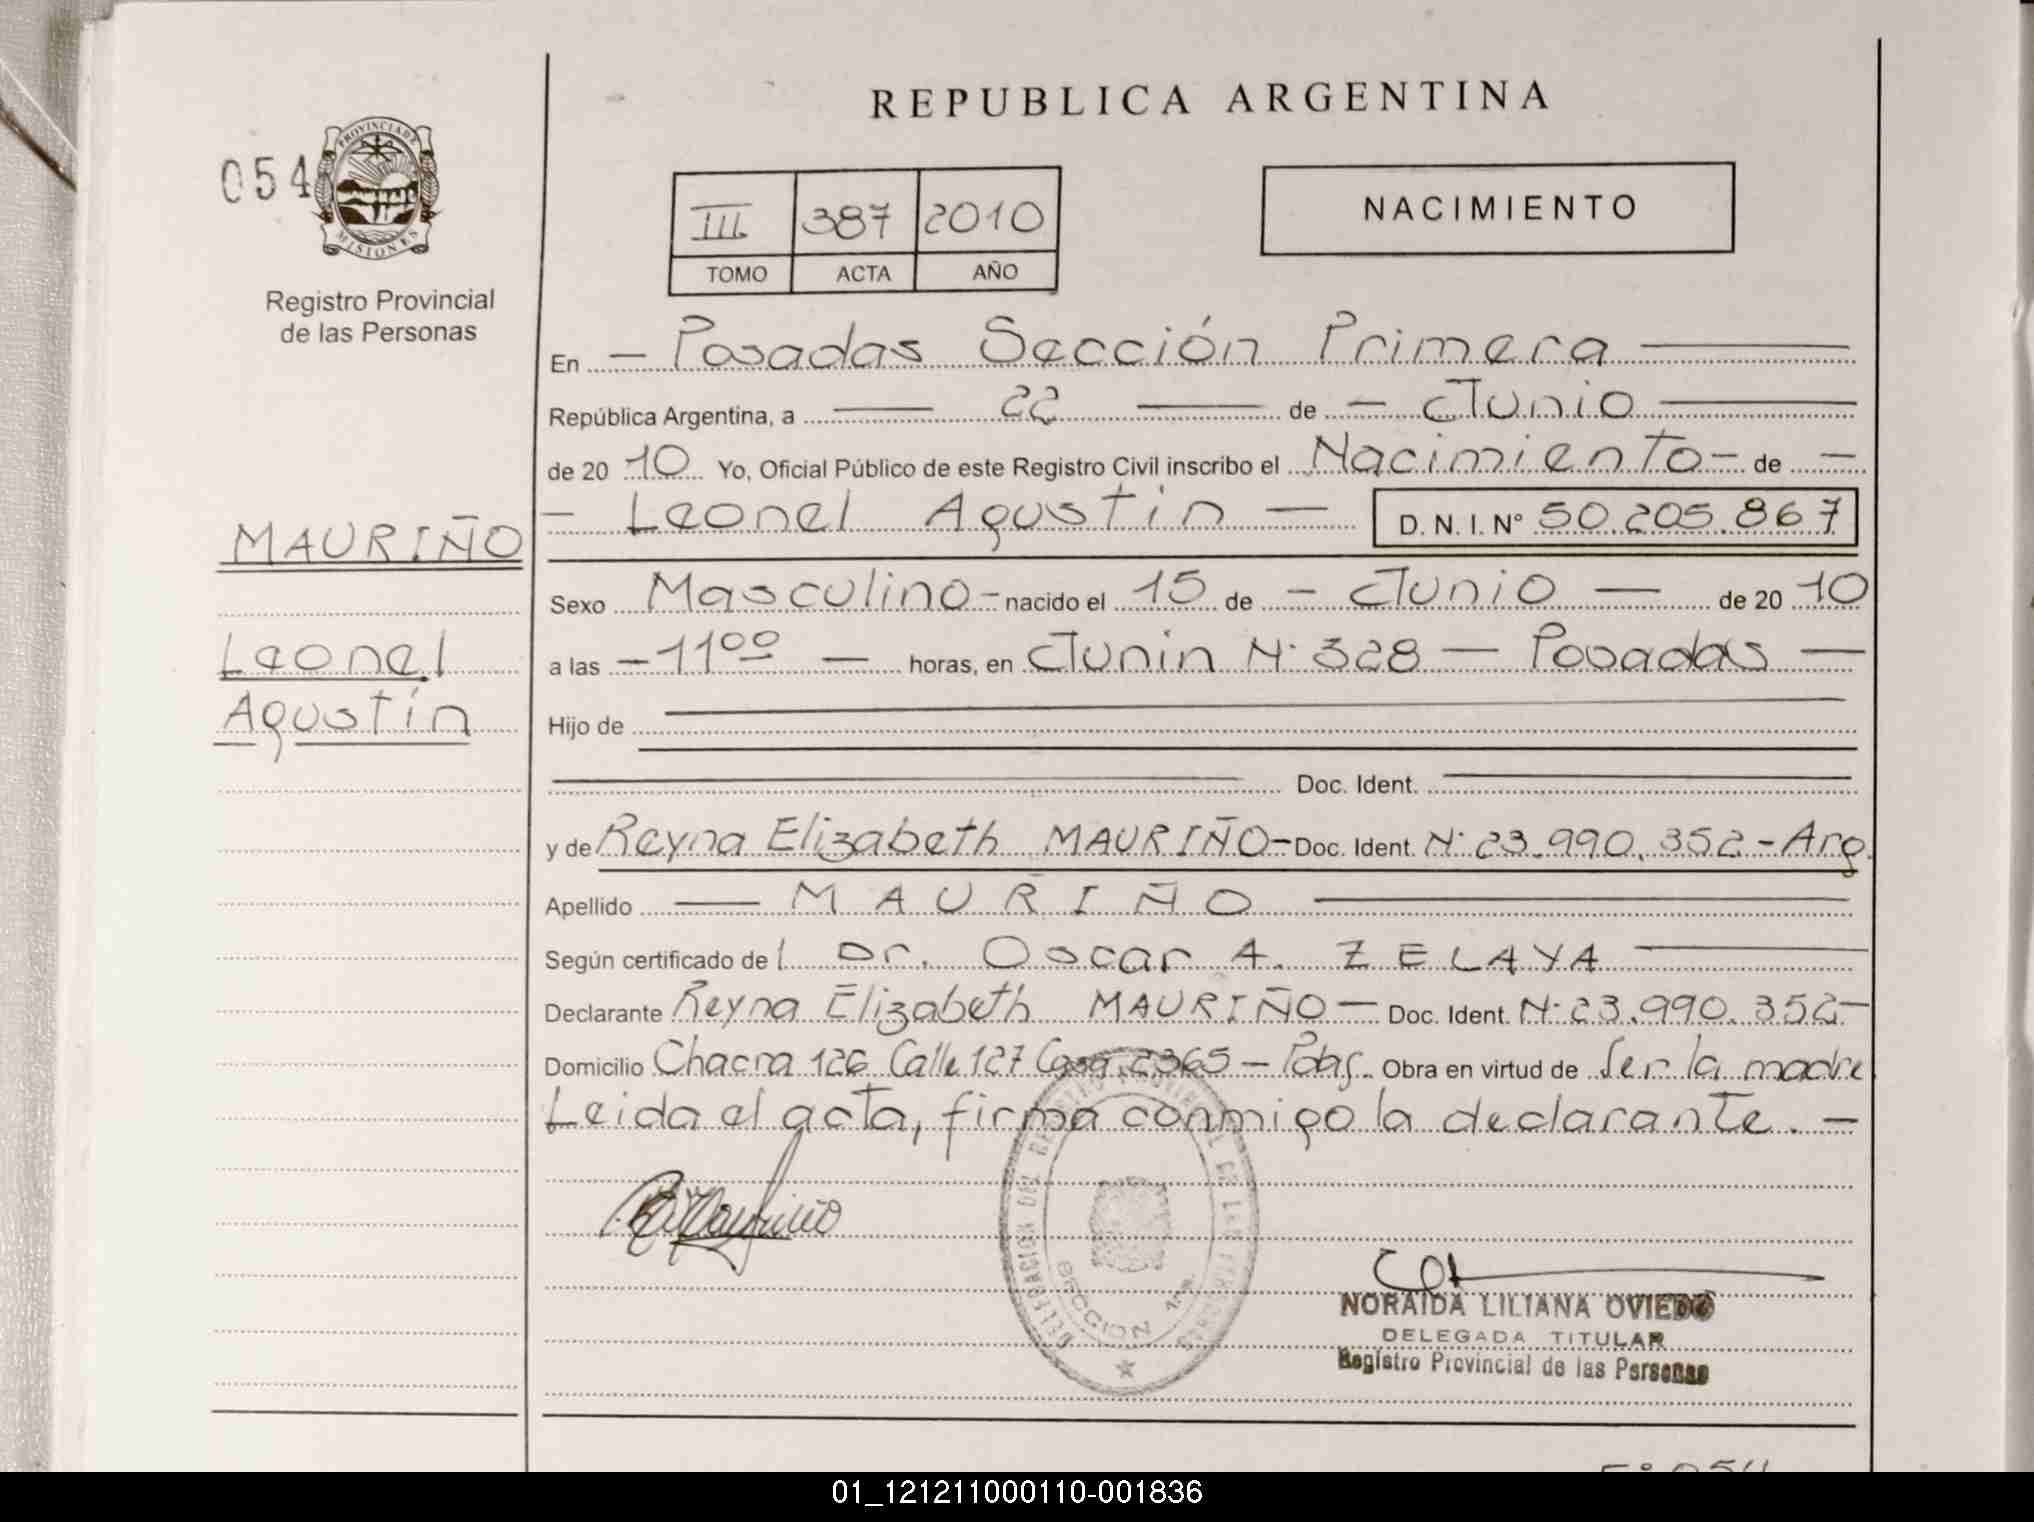 REPUBLICA ARGENTINA
054
PROVINCIA DE
MISIONES
Registro Provincial
de las Personas
III 387 2010
TOMO ACTA AÑO
NACIMIENTO
En - Posadas Sección Primera
República Argentina, a 22 de - Junio
de 20 10 Yo, Oficial Público de este Registro Civil inscribo el Nacimiento - de -
- Leonel Agustin - D. N. I. N° 50.205.867
MAURIÑO
Leonel
Agustín
Sexo Masculino - nacido el 15 de - Junio - de 20 10
a las - 11⁰⁰ - horas, en Junin N° 328 - Posadas -
Hijo de
Doc. Ident.
y de Reyna Elizabeth MAURIÑO - Doc. Ident. N° 23.990.352 - Arg.
Apellido - MAURIÑO
Según certificado de l Dr. Oscar A. ZELAYA
Declarante Reyna Elizabeth MAURIÑO - Doc. Ident. N° 23.990.352 -
Domicilio Chacra 126 Calle 127 Casa 2365 - Pdas. Obra en virtud de Ser la madre
Leida el acta, firma conmigo la declarante. -
DELEGACION DEL REGISTRO PROVINCIAL DE LAS PERSONAS
SECCION 1ra.
NORAIDA LILIANA OVIEDO
DELEGADA TITULAR
Registro Provincial de las Personas
01_121211000110-001836